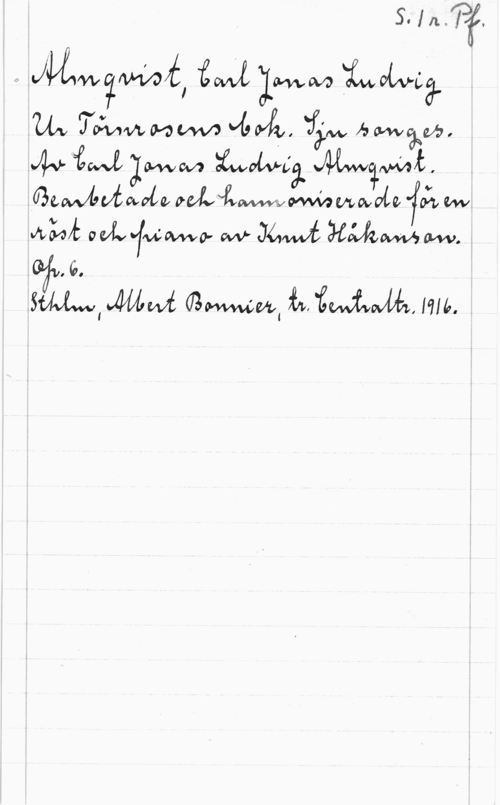 S. 1 r. Pf.
Almqvist, Carl Jonas Ludvig
Ur Törnrosens bok. Sju songes.
Av Carl Jonas Ludvig Almqvist.
Bearbetade och harmoniserade för en
röst och piano av Knut Håkanson.
Op. 6.
Sthlm, Albert Bonnier, tr. Centraltr. 1916.